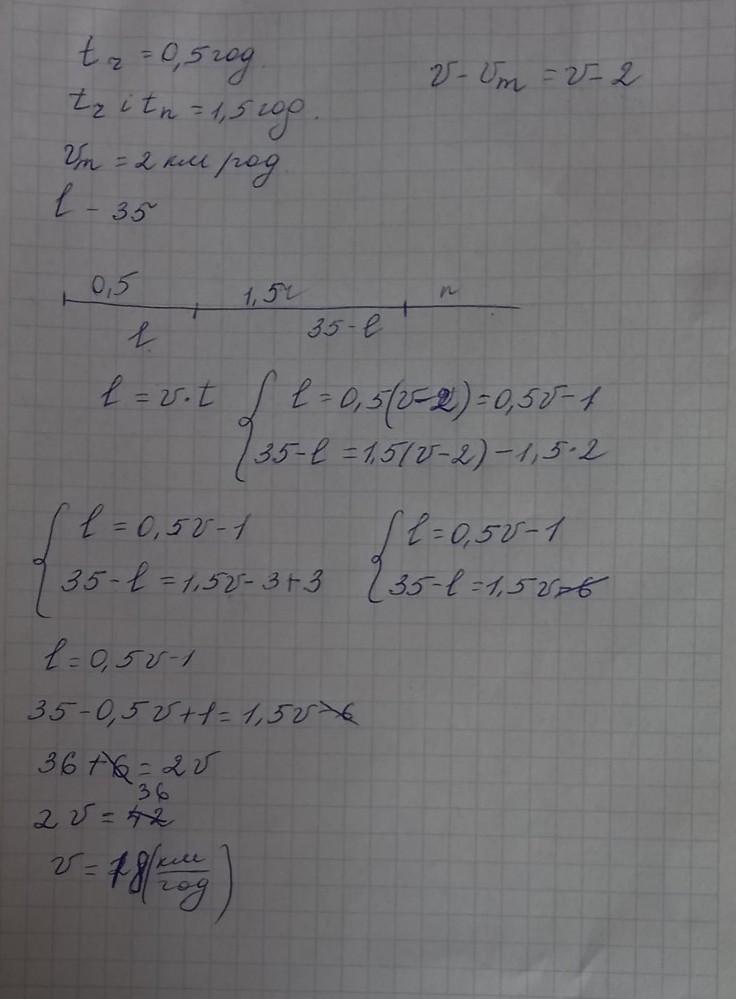 t г = 0,5 год.
v - vт = v - 2
tг і tп = 1,5 год.
vт = 2 км/год
l - 35
0,5 1,5г п
l 35 - l
l = v·t { l = 0,5(v-2) = 0,5v - 1
35 - l = 1,5(v-2) - 1,5·2
{ l = 0,5v - 1 { l = 0,5v - 1
35 - l = 1,5v - 3 + 3 35 - l = 1,5v - 6
l = 0,5v - 1
35 - 0,5v + 1 = 1,5v - 6
36 + 6 = 2v
36
2v = 42
v = 18 (км/год)